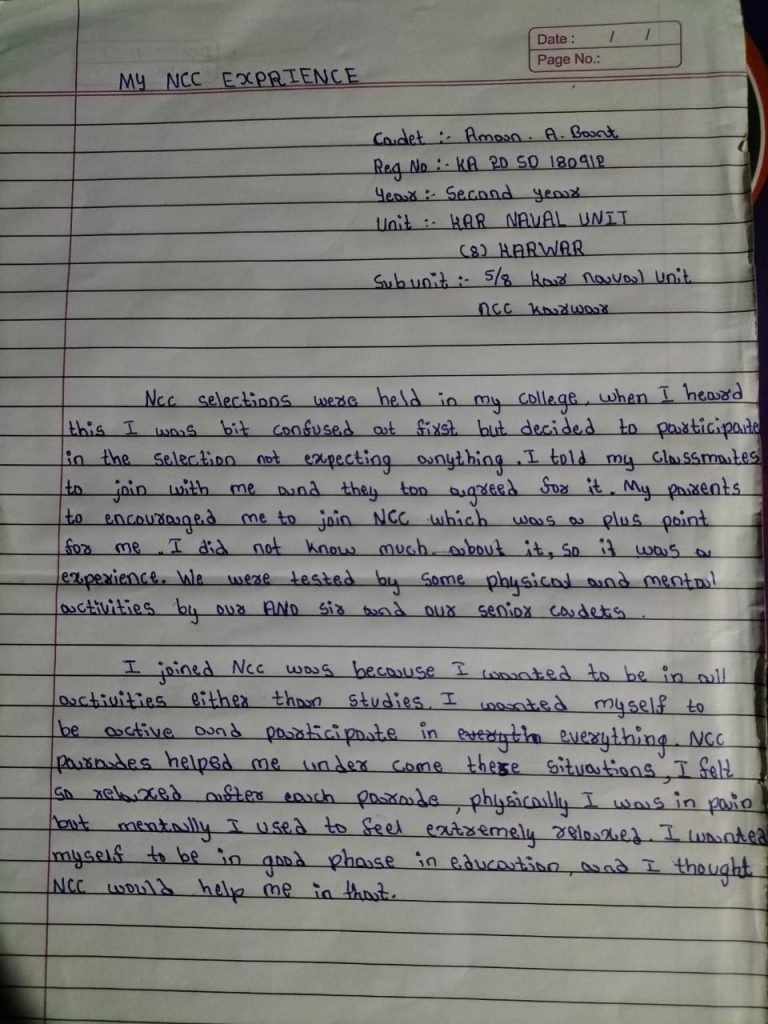 Date : / /
Page No.:
MY NCC EXPRIENCE
Cadet :- Aman. A. Bant
Reg No :- KA 20 SD 180912
Year :- Second year
Unit :- KAR NAVAL UNIT
(8) KARWAR
Subunit :- 5/8 Kar naval unit
NCC karwar
Ncc selections were held in my college, when I heard
this I was bit confused at first but decided to participate
in the selection not expecting anything. I told my classmates
to join with me and they too agreed for it. My parents
to encouraged me to join NCC which was a plus point
for me. I did not know much about it, so it was a
experience. We were tested by some physical and mental
activities by our ANO sir and our senior cadets.
I joined Ncc was because I wanted to be in all
activities either than studies. I wanted myself to
be active and participate in everything. NCC
parades helped me under come these situations, I felt
so relaxed after each parade, physically I was in pain
but mentally I used to feel extremely relaxed. I wanted
myself to be in good phase in education, and I thought
NCC would help me in that.